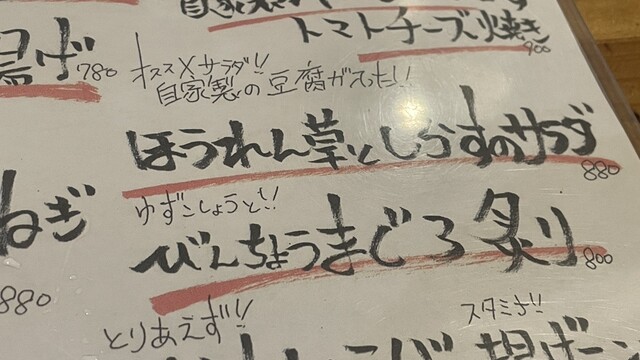 自家製
トマトチーズ焼き
900
揚げ 780
オススメサラダ!!
自家製の豆腐がえった!!
ほうれん草としらすのサラダ
880
ねぎ
880
ゆずこしょうと!!
びんちょうまぐろ炙り
800
とりあえず!!
スタミナ!!
揚げ